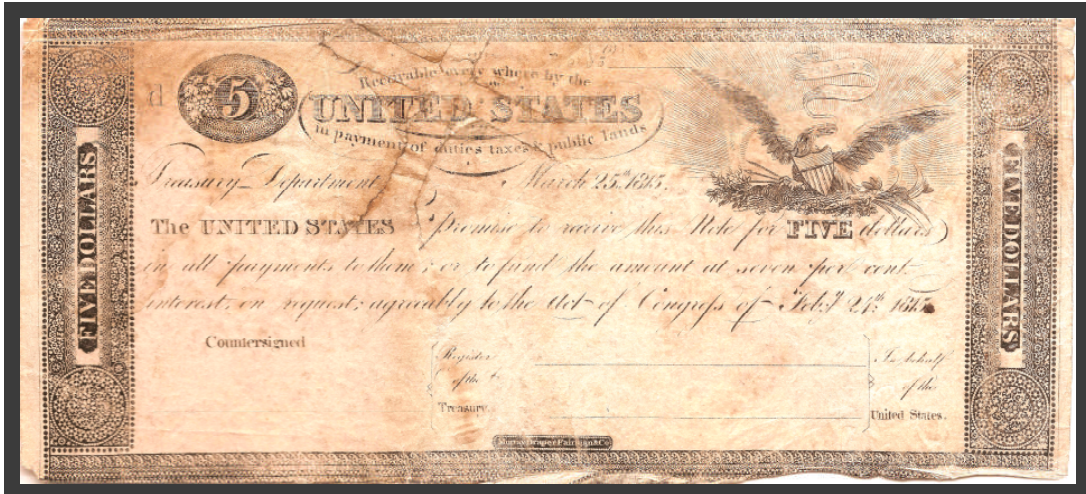 Receivable every where by the
d 5 UNITED STATES
in payment of duties taxes & public lands
Treasury Department, March 25th 1815.
The UNITED STATES Promise to receive this Note for FIVE dollars
in all payments to them; or to fund the amount at seven per cent.
interest, on request; agreeably to the Act of Congress of Feb.y 24th 1815.
FIVE DOLLARS
FIVE DOLLARS
Countersigned
Register
of the
Treasury.
In behalf
of the
United States.
Murray Draper Fairman & Co